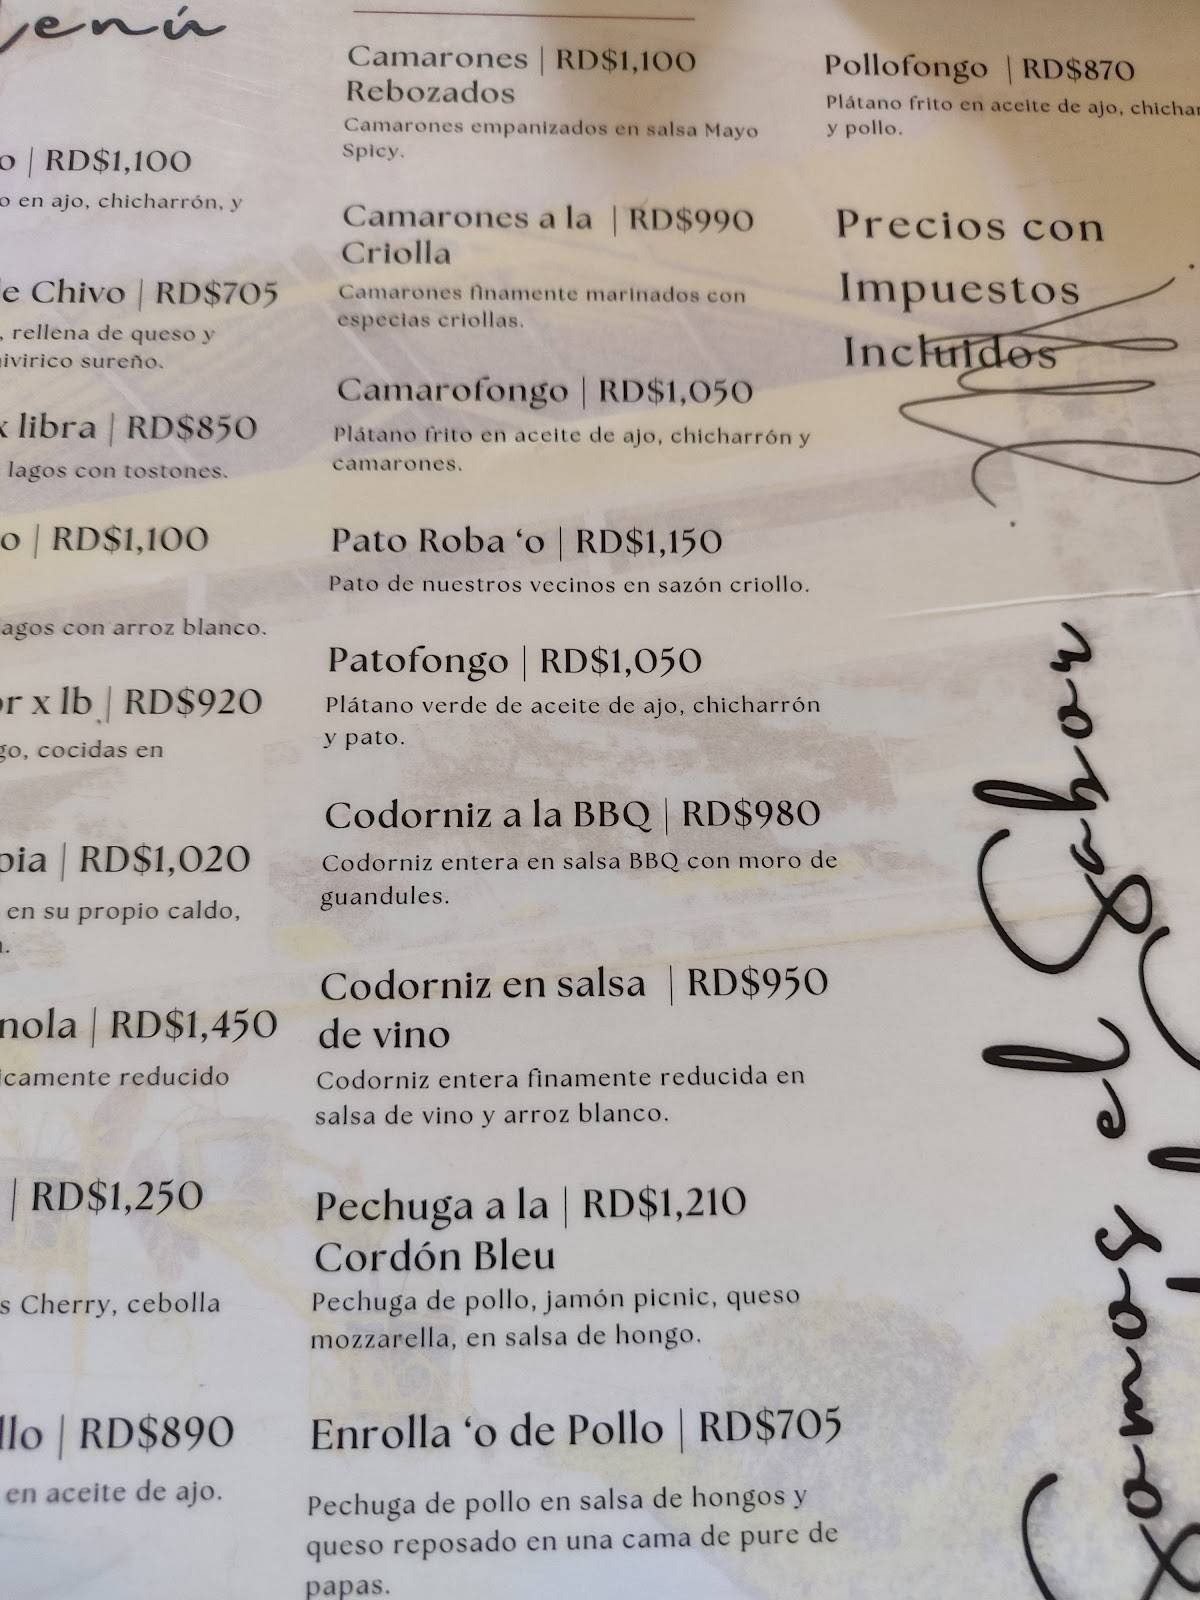 enú
o | RD$1,100
o en ajo, chicharrón, y
e Chivo | RD$705
, rellena de queso y
ivirico sureño.
x libra | RD$850
lagos con tostones.
o | RD$1,100
agos con arroz blanco.
or x lb | RD$920
go, cocidas en
pia | RD$1,020
en su propio caldo,
nola | RD$1,450
icamente reducido
| RD$1,250
s Cherry, cebolla
llo | RD$890
en aceite de ajo.
Camarones | RD$1,100
Rebozados
Camarones empanizados en salsa Mayo
Spicy.
Camarones a la | RD$990
Criolla
Camarones finamente marinados con
especias criollas.
Camarofongo | RD$1,050
Plátano frito en aceite de ajo, chicharrón y
camarones.
Pato Roba ‘o | RD$1,150
Pato de nuestros vecinos en sazón criollo.
Patofongo | RD$1,050
Plátano verde de aceite de ajo, chicharrón
y pato.
Codorniz a la BBQ | RD$980
Codorniz entera en salsa BBQ con moro de
guandules.
Codorniz en salsa | RD$950
de vino
Codorniz entera finamente reducida en
salsa de vino y arroz blanco.
Pechuga a la | RD$1,210
Cordón Bleu
Pechuga de pollo, jamón picnic, queso
mozzarella, en salsa de hongo.
Enrolla ‘o de Pollo | RD$705
Pechuga de pollo en salsa de hongos y
queso reposado en una cama de pure de
papas.
Pollofongo | RD$870
Plátano frito en aceite de ajo, chichar
y pollo.
Precios con
Impuestos
Incluidos
Somos el Sabor